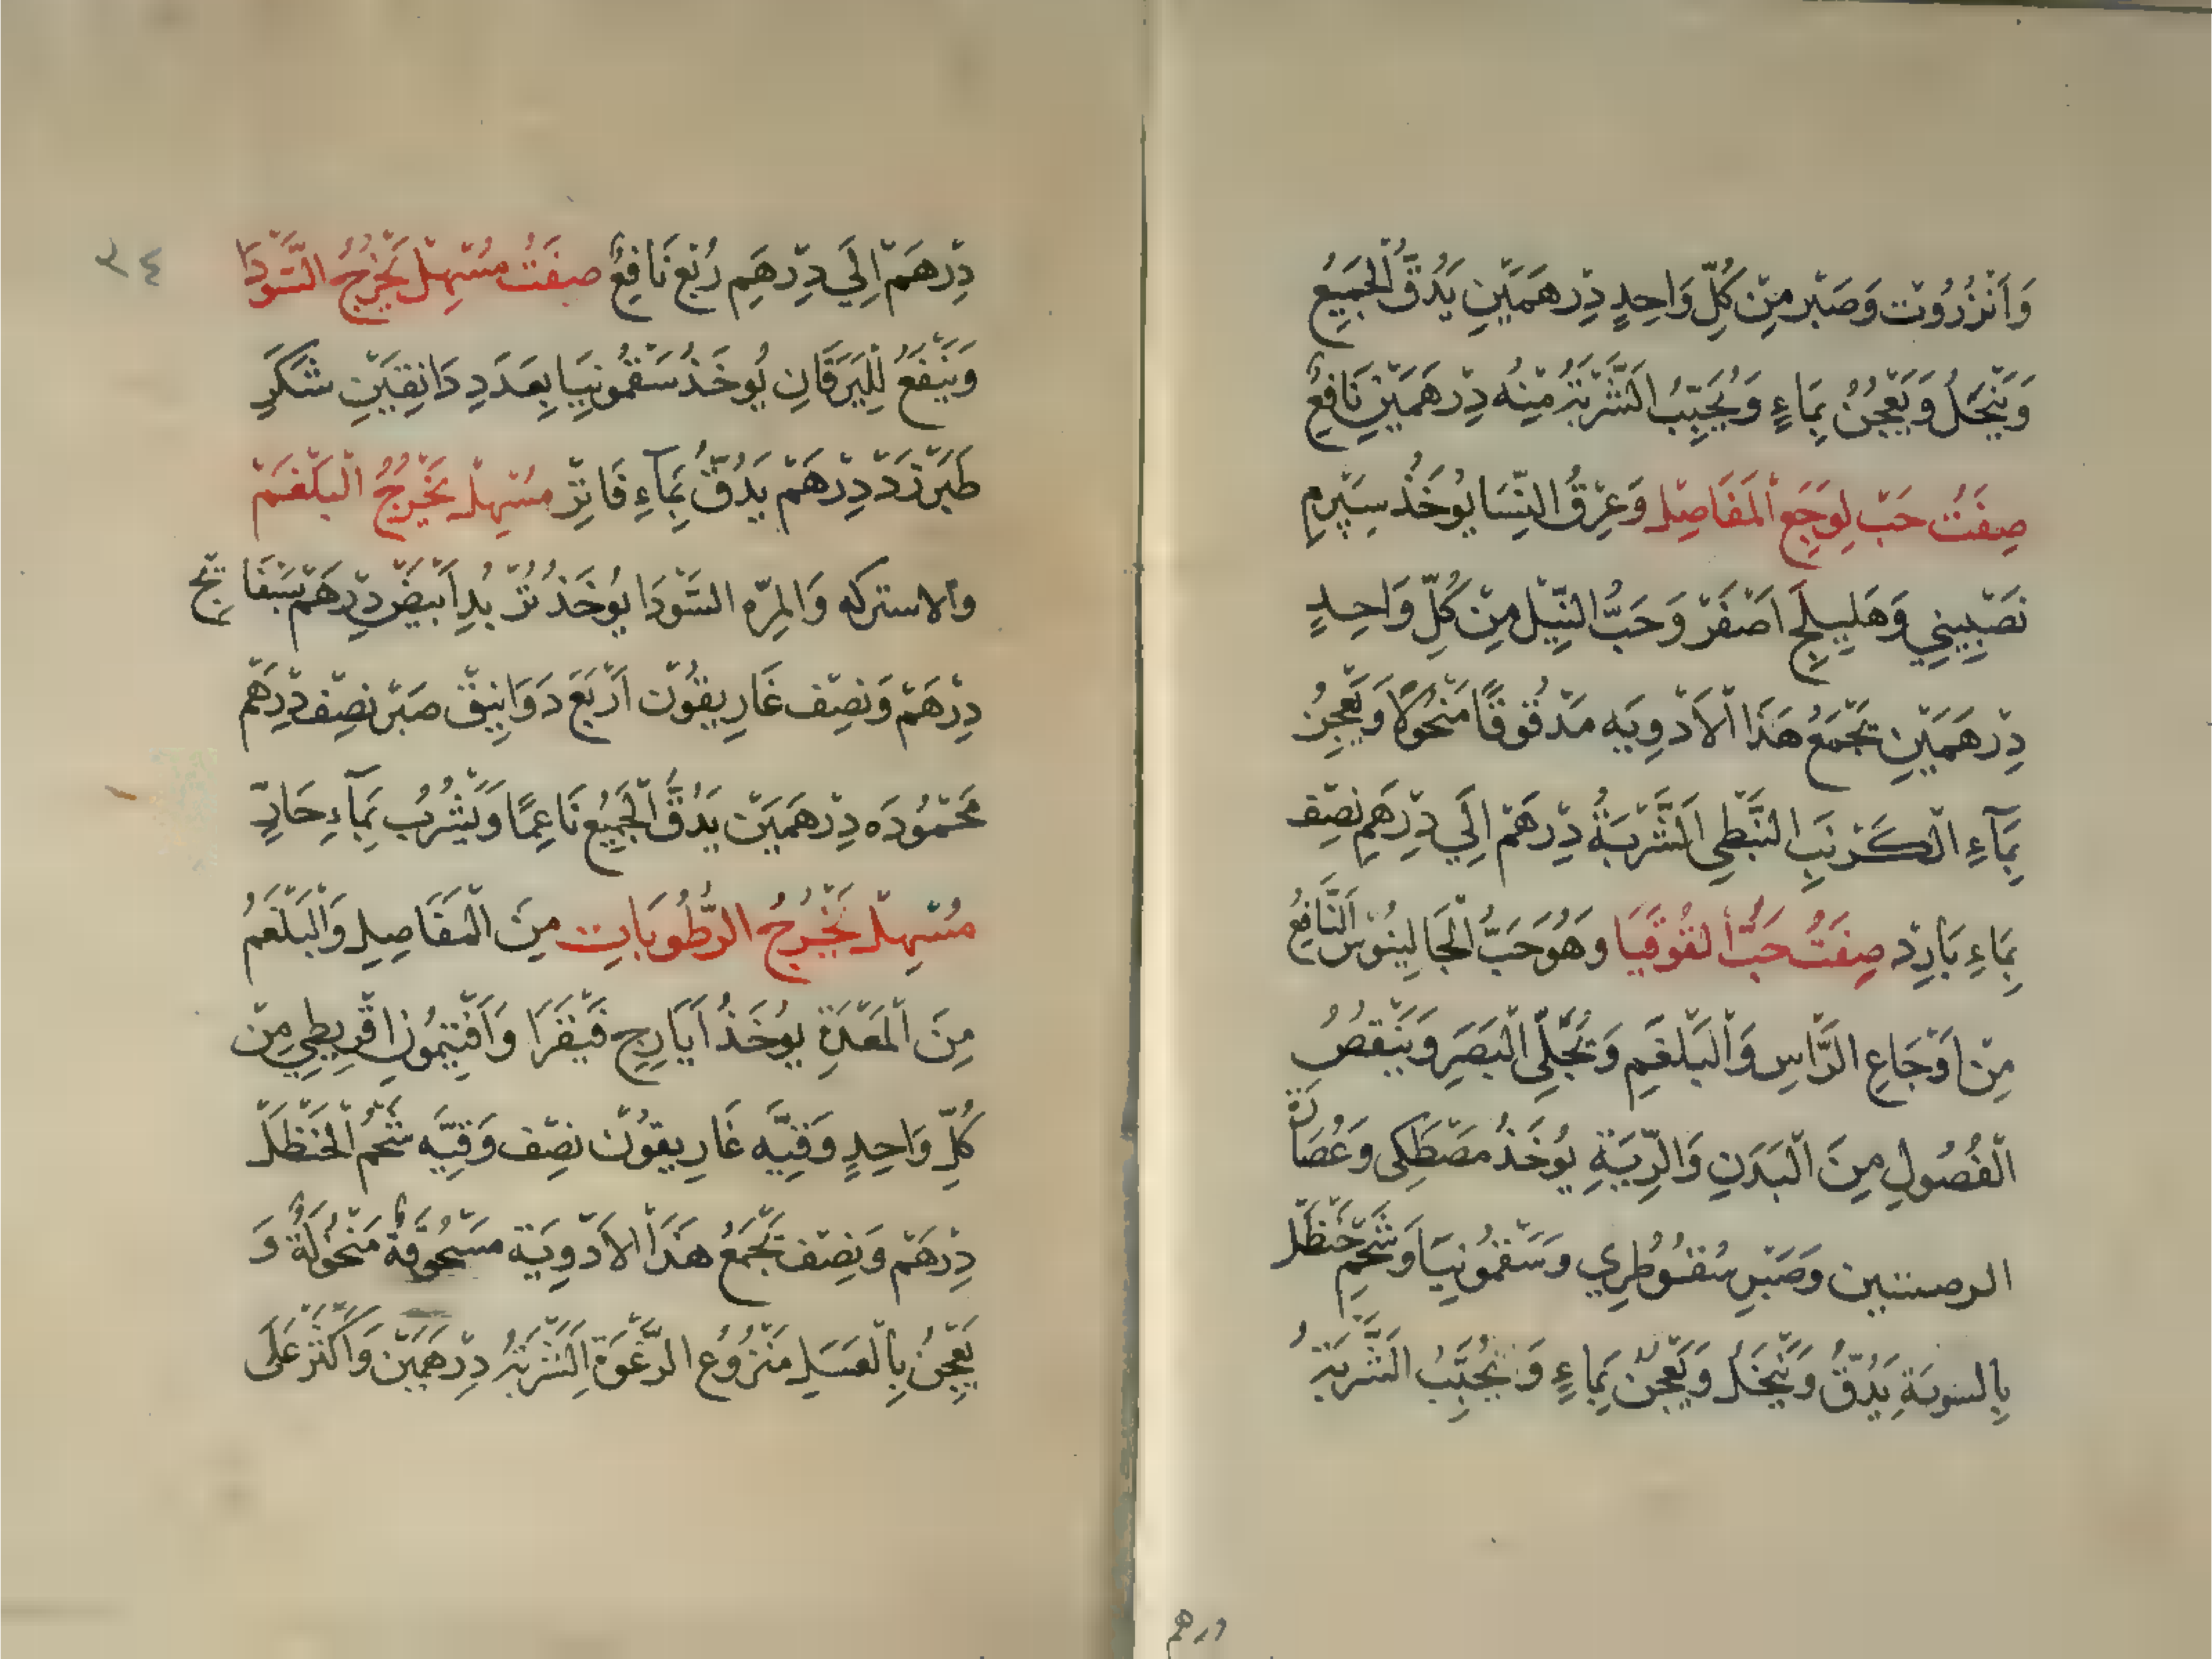 وَاَنْزَرُوْت وَصَبْر مِنْ كُلِّ وَاحِدٍ دِرْهَمَيْنِ يَدُقُّ الْجَمِيْعُ
وَيَنْخَلُ وَيَعْجِنُ بِمَاءٍ وَيُحَبِّبُ الشَّرْبَتُه مِنْهُ دِرْهَمَيْنِ نَافِعٌ
صِفَتُ حَبّ لِوَجَعِ الْمَفَاصِلِ وَعِرْقُ النِّسَا يُوخَذُ سِبْرِم
نَصْبِيبِيْ وَهَلِيلَجِ اَصْفَرْ وَحَبُّ النِّيْلِ مِنْ كُلِّ وَاحِدٍ
دِرْهَمَيْنِ تَجْمَعُ هَذَا الْاَدْوِيَه مَدْقُوقًا مَنْخُولًا وَيَعْجِنُ
بِمَآءِ الْكَرْنَبِ النَّبْطِي اَلشَّرْبَةُ دِرْهَمْ اِلَي دِرْهَمِ نِصْف
بِمَاءِ بَارِدْ صِفَتُ حَبُّ الْقُوقَيَا وَهُوَ حَبُّ الْجَالِينُوْس اَلنَّافِعُ
مِنْ اَوْجَاعِ الرَّاسِ وَالْبَلْغَمِ وَيُجَلِّي الْبَصَرِ وَيَنْقُصُ
الْفُصُولِ مِنَ الْبَدَنِ وَالرِّيَةِ يُوْخَذُ مَصْطَكِى وَعُصَارَة
الرصنتين وَصَبْرِ سُقُوطْرِي وَسَقْمُونِيَا وَشَحْمِ حَنْظَلْ
بِالسويَةِ يَدُقُّ وَيَنْخَلُ وَيَعْجِنُ بِمَاءٍ وَيُحَبِّبُ الشَّرْبَتُه
دِرْهَمْ اِلَي دِرْهَمِ رُبْع نَافِعٌ صِفَتُ مُسْهِلْ يَخْرُجُ السَّوْدَا
وَيَنْفَعُ لِلْيَرَقَانِ يُوخَذُ سَقْمُونِيَا بِعَدَدِ دَانِقَيْنِ سَكَرٍ
طَبَرْزَدْ دِرْهَمْ يَدُقُّ بِمَآءِ فَاتِرْ مُسْهِلْ يَخْرُجُ الْبَلْغَمْ
والاستركه وَالمِرّه السَّوْدَا يُوخَذُ تُرْبُدِ اَبْيَضْ دِرْهَمْ بَسْفَايِج
دِرْهَمْ وَنِصْف غَارِيقُوْن اَرْبَعَ دَوَانِيْق صَبْرْ نِصْف دِرْهَمْ
مَحْمُودَه دِرْهَمَيْنْ يَدُقُّ الْجَمِيْعُ نَاعِمًا وَيَشْرُبُ بِمَآءِ حَارِّ
مُسْهِلْ يَخْرُجُ الرُّطُوبَاتِ مِنَ الْمَفَاصِلِ وَالْبَلْغَمُ
مِنَ الْمَعْدَةِ يُوخَذُ اَيَارِجِ فَيْقَرَا وَاَفْتِيْمُونِ اقْرِيطِي مِنْ
كُلِّ وَاحِدٍ وَقِيَّه غَارِيقُوْن نِصْف وَقِيَّه شَحْمُ الْحَنْظَلْ
دِرْهَمْ وَنِصْف تَجْمَعُ هَذَا الْاَدْوِيَة مَسْحُوقَةٌ مَنْخُولَةٌ وَ
يَعْجِنُ بِالْعَسَلِ مَنْزُوعِ الرَّغْوَةِ اَلشَّرْبَتُه دِرْهَمَيْنْ وَاَكْثَرْ عَلَى
٣٤